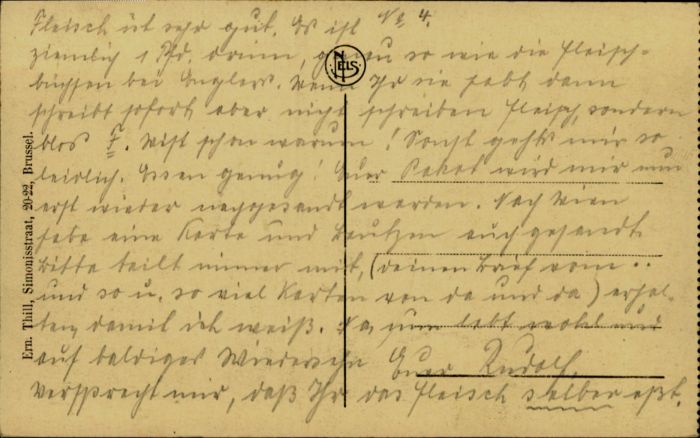 No 4.
Fleisch ist sehr gut. Es ist
ziemlich 1 Pfd. drinn, genau so wie die Fleisch-
büchsen bei Englers. Wenn Ihr sie habt dann
schreibt sofort aber nicht schreiben Fleisch, sondern
blos F. Wißt schon warum! Sonst gehts mir so
leidlich. Essen genug! Euer Paket wird mir nun
erst wieder nachgesandt werden. Nach Wien
habe eine Karte und Bautzen auch gesandt.
Bitte teilt immer mit, (deinen Brief vom ..
und so u. so viel Karten von da und da) erhal-
ten, damit ich weiß. Na, nun lebt wohl und
auf baldiges Wiedersehn Euer Rudolf.
Versprecht mir, daß Ihr das Fleisch selber eßt.
NELS
Ern. Thill, Simonisstraat, 20-22, Brussel.